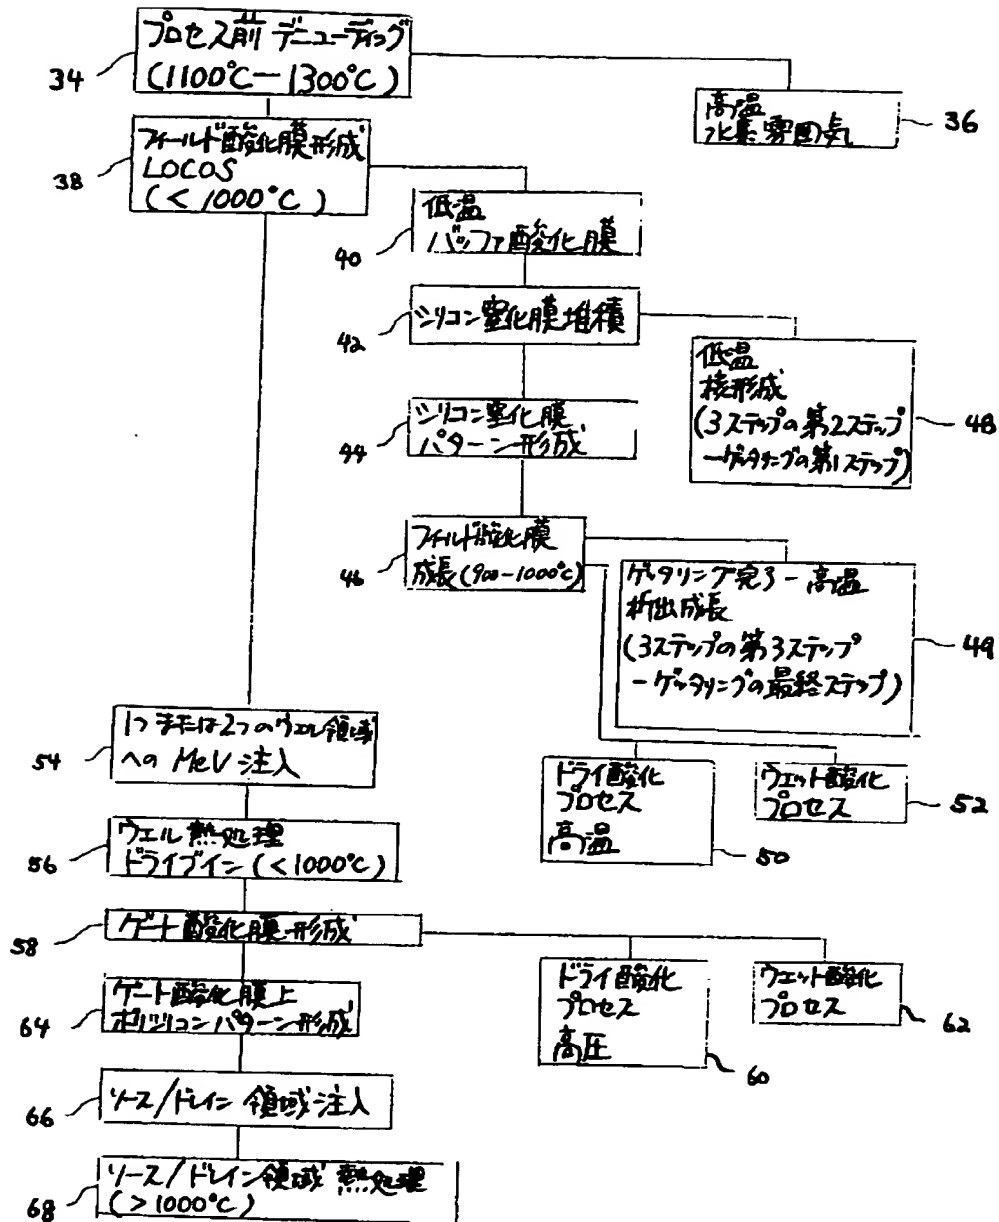 プロセス前デニューディング
(1100℃ー1300℃)
34
高温
水素雰囲気
36
フィールド酸化膜形成
LOCOS
(<1000℃)
38
低温
バッファ酸化膜
40
シリコン窒化膜堆積
42
低温
核形成
(3ステップの第2ステップ
ーゲッタリングの第1ステップ)
48
シリコン窒化膜
パターン形成
44
フィールド酸化膜
成長(900-1000℃)
46
ゲッタリング完了-高温
析出成長
(3ステップの第3ステップ
-ゲッタリングの最終ステップ)
49
1つまたは2つのウェル領域
へのMeV注入
54
ドライ酸化
プロセス
高温
50
ウェット酸化
プロセス
52
ウェル熱処理
ドライブイン(<1000℃)
56
ゲート酸化膜形成
58
ドライ酸化
プロセス
高圧
60
ウェット酸化
プロセス
62
ゲート酸化膜上
ポリシリコンパターン形成
64
ソース/ドレイン領域注入
66
ソース/ドレイン領域熱処理
(>1000℃)
68